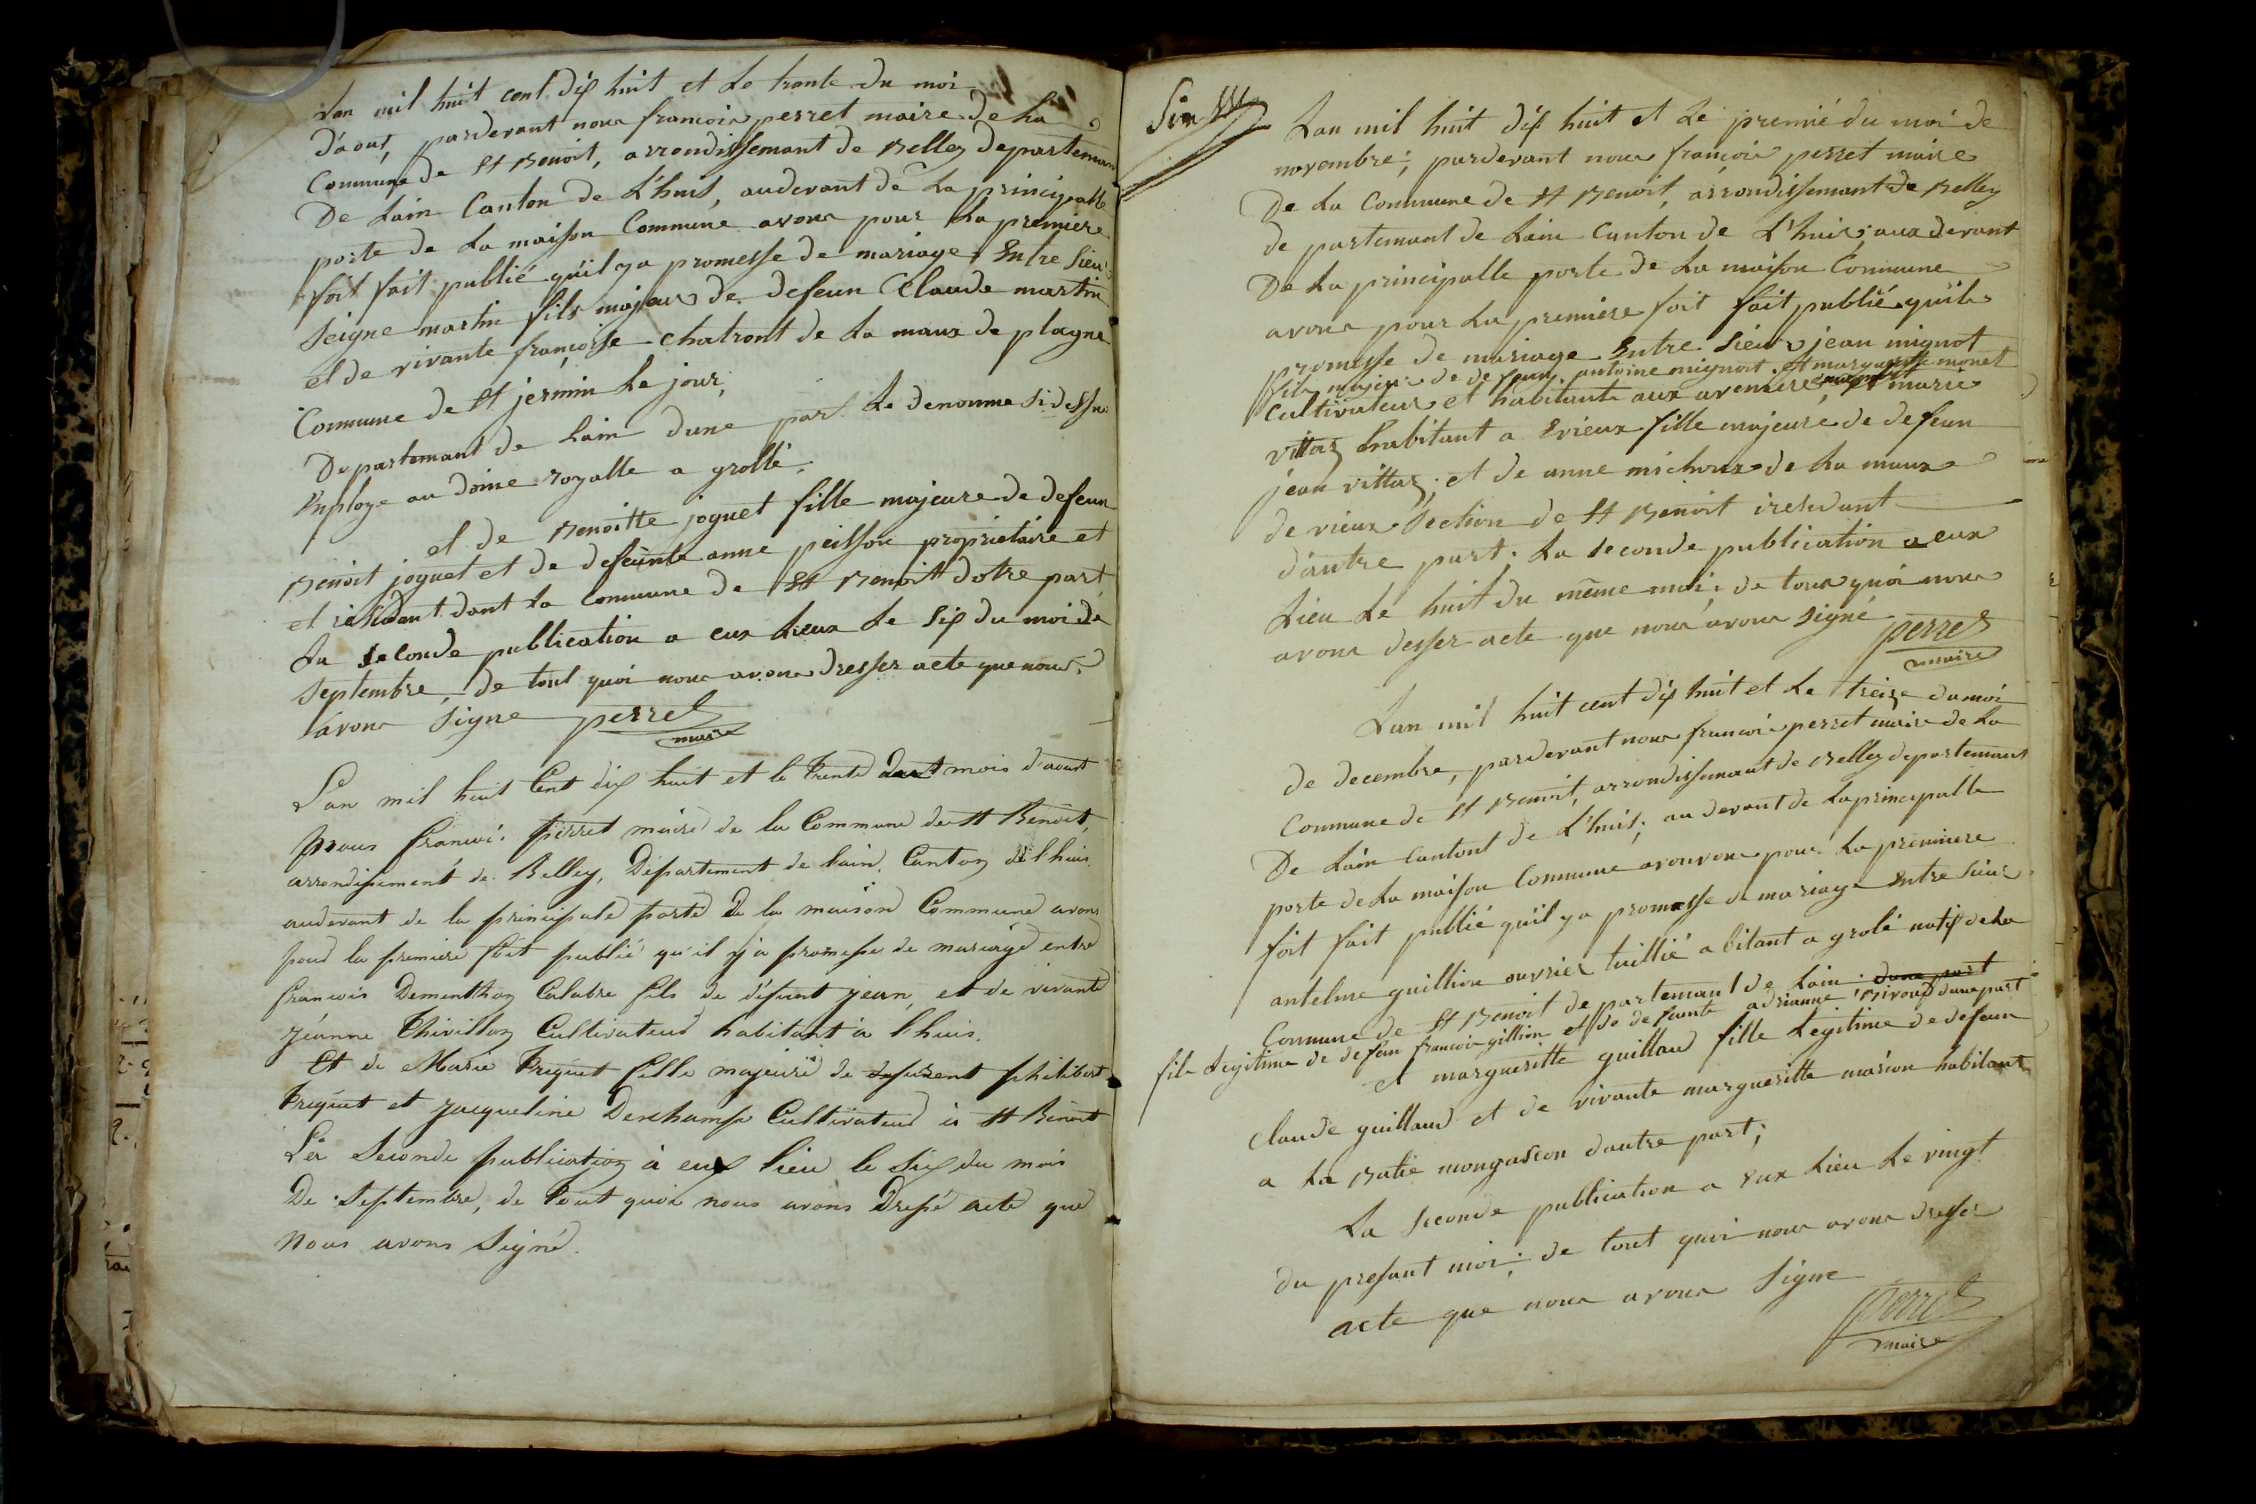 Lan mil huit cent dix huit et Le trante du moi
D'aout, pardevant nous francois perret maire de La
Commune de St Benoit, arrondissemant de Belley departemant
De Lain Canton de L'huis, audevant de La principalle
porte de La maison Commune avons pour La premiere
foit fait publié quil ya promesse de mariage Entre Sieur
Seigne martin fils majeur de defeun Claude martin
et de vivante françoise chatront de La maux de plagne
Commune de St jermin Le jour,
Departemant de Lain dune part Le denomme Sidessus
Employe au doine royalle a grollé.
et de Benoitte joguet fille majeure de defeun
Benoit joguet et de defeunte anne peisson proprietaire et
et residant dant La Commune de St Benoitt dotre part
La Seconde publication a eux Lieux Le Six du moi de
Septembre, de tout quoi nous avons dresser acte que nous
avons Signe perret
maire
L'an mil huit Cent dix huit et le trente mois d'aoust
nous francois perret maire de la Commune de St Benoit,
arrondissement de Belley, Département de lain, Canton de lhuis
audevant de la principale porte de la maison Commune avons
pour la premiere foit publié qu'il y a promesse de mariage entre
francois Dementhon Calabre fils de defunt jean, et de vivante
jeanne Thivillon Cultivateur habitant a lhuis.
Et de Marie Treguet fille majeure de defurent philibert
Treguet et jacqueline Deschamps Cultivateur à St Benoit
La Seconde publication à eux lieu le Six du mois
De Septembre, de tout quoi nous avons Dressé acte que
Nous avons Signé.
Lan mil huit dix huit et Le premié du moi de
novembre; pardevant nous françois perret maire
De La Commune de St Benoit, arrondissemant de Belley
de partemant de Lain Canton de L'huis; aux devant
De La principalle porte de La maison Commune
avons pour La premiere foit fait publié quil a
promesse de mariage Entre Sieur jean mignot
fils majeur de defeun antoine mignot et marguerite monet
Cultivateur et habitante aux avenieres et marie
vittoz habitant a Evieux fille majeure de defeun
jean vittoz; et de anne michoux de La maux
de vieux Section de St Benoit iresidant
d'autre part; La Seconde publication a eux
Lieu Le huit du même moi; de tous quoi nous
avons desser acte que nous avons Signé perret
maire
Lan mil huit cent dix huit et Le treize du moi
de decembre, pardevant nous francois perret maire de La
Commune de St Benoit, arrondissemant de Belley departemant
De Lain Cantont de L'huis; au devant de Laprincipalle
porte de La maison Commune avonvons pour La premiere
foit fait publié quil ya promesse de mariage Entre Sieur
antelme guillion ouvrier taillié abitant a grolé natif de La
Commune de St Benoit departemant de Lain dune part
fils Legitime de defeun francois gillion et de defeunte adrianne Biroud dune part
et margueritte guillaud fille Legitime de defeun
Claude guillaud et de vivante margueritte marion habitant
a La Batie mongascon dautre part;
La Seconde publication a Eux Lieu Le vingt
du presant moi; de tout quoi nous avons dresser
acte que nous avons Signe
perret
maire